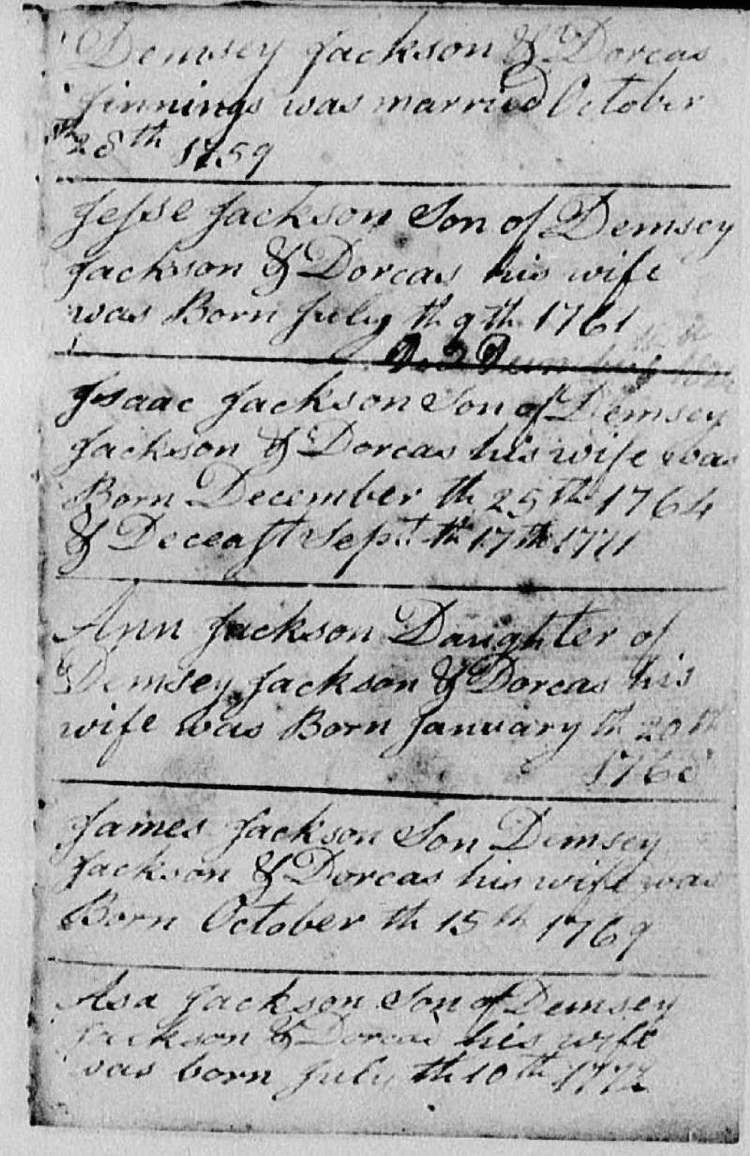 Demsey Jackson & Dorcas
Jinnings was married October
th 28th 1759
Jesse Jackson Son of Demsey
Jackson & Dorcas his wife
was Born July th 9th 1761
Isaac Jackson Son of Demsey
Jackson & Dorcas his wife was
Born December th 25th 1764
& Deceast Sept th 17th 1771
Ann Jackson Daughter of
Demsey Jackson & Dorcas his
wife was Born January th 20th
James Jackson Son Demsey
Jackson & Dorcas his wife was
Born October th 15th 1769
Asa Jackson Son of Demsey
Jackson & Dorcas his wife
was born July th 10th